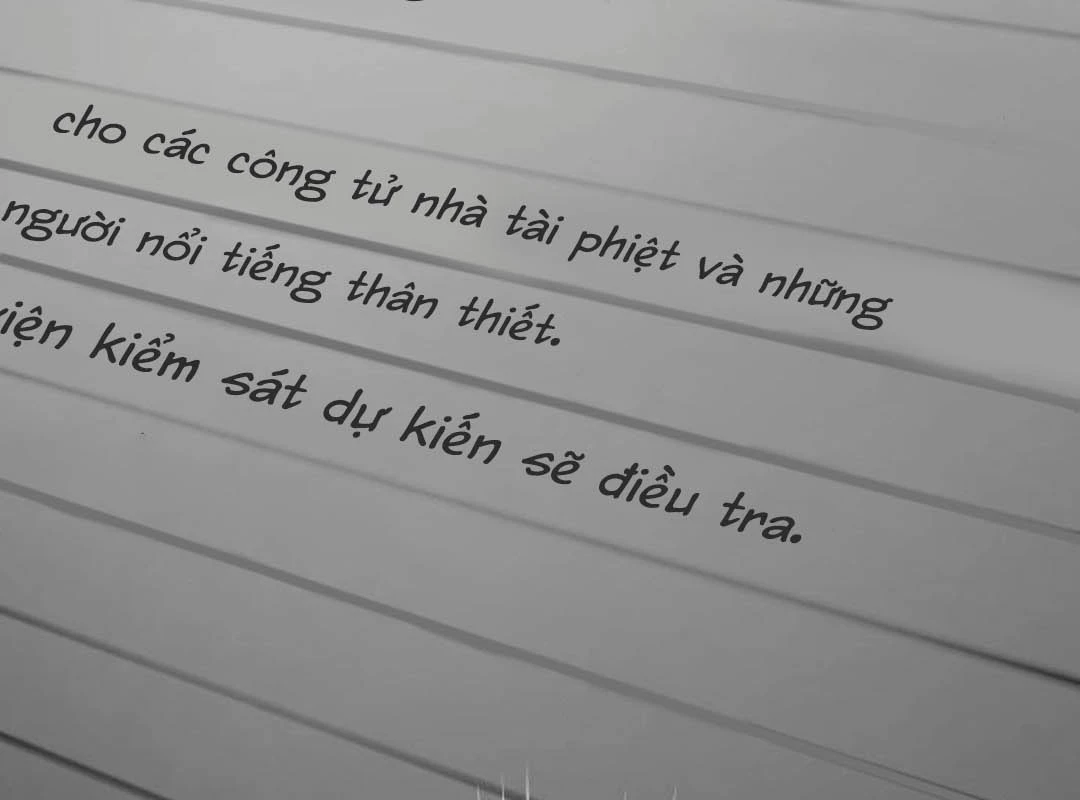 cho các công tử nhà tài phiệt và những
người nổi tiếng thân thiết.
kiểm sát dự kiến sẽ điều tra.